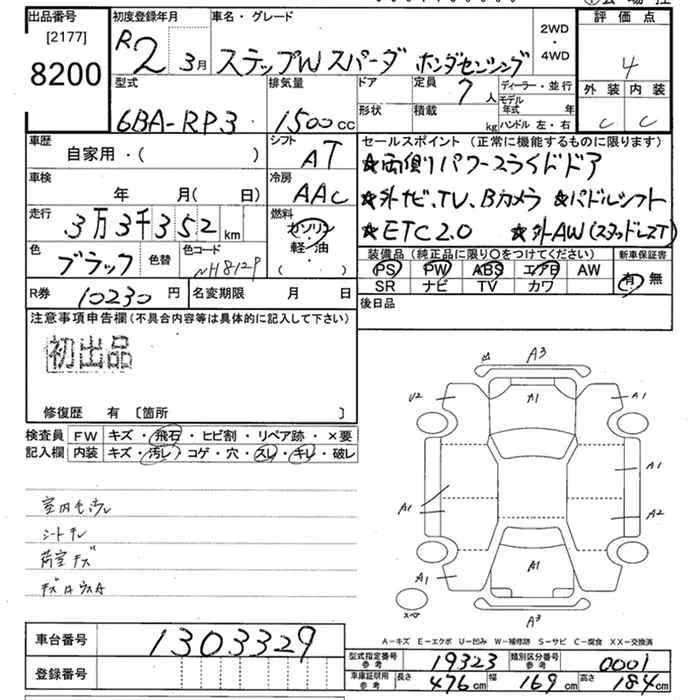 出品番号
[2177]
8200
初度登録年月
R2 3月
車名・グレード
ステップW スパーダ ホンダセンシング
2WD
・
4WD
評価点
4
外装 内装
C C
型式
6BA-RP3
排気量
1500cc
ドア
形状
定員
7人
積載
kg
ディーラー・並行
モデル年式 年
ハンドル 左・右
車歴
自家用・( )
シフト
AT
車検
年 月( 日)
冷房
AAC
走行
3万3千352km
燃料
ガソリン
軽・油
( )
色
ブラック
色替
色コード
NH812P
R券 10230円
名変期限 月 日
セールスポイント(正常に機能するものに限ります)
★両側パワースライドドア
★外ナビ、TV、Bカメラ ★パドルシフト
★ETC2.0 ★外AW(スタッドレスT)
装備品(純正品に限り○をつけてください)
PS PW ABS エアB AW
SR ナビ TV カワ
新車保証書
有・無
後日品
注意事項申告欄(不具合内容等は具体的に記入して下さい)
初出品
修復歴 有 〔箇所 〕
検査員記入欄
FW キズ・飛石・ヒビ割・リペア跡・×要
内装 キズ・汚レ・コゲ・穴・スレ・キレ・破レ
シートキレ
荷室キズ
A3
U2 A1 A1
A1
A1 A2
A1 A1
スペア
A3
A-キズ E-エクボ U-凹み W-補修跡 S-サビ C-腐食 XX-交換済
車台番号 1303329
登録番号
型式指定番号 参考 19323
類別区分番号 参考 0001
車庫証明用 参考 長さ 476cm 幅 169cm 高さ 184cm